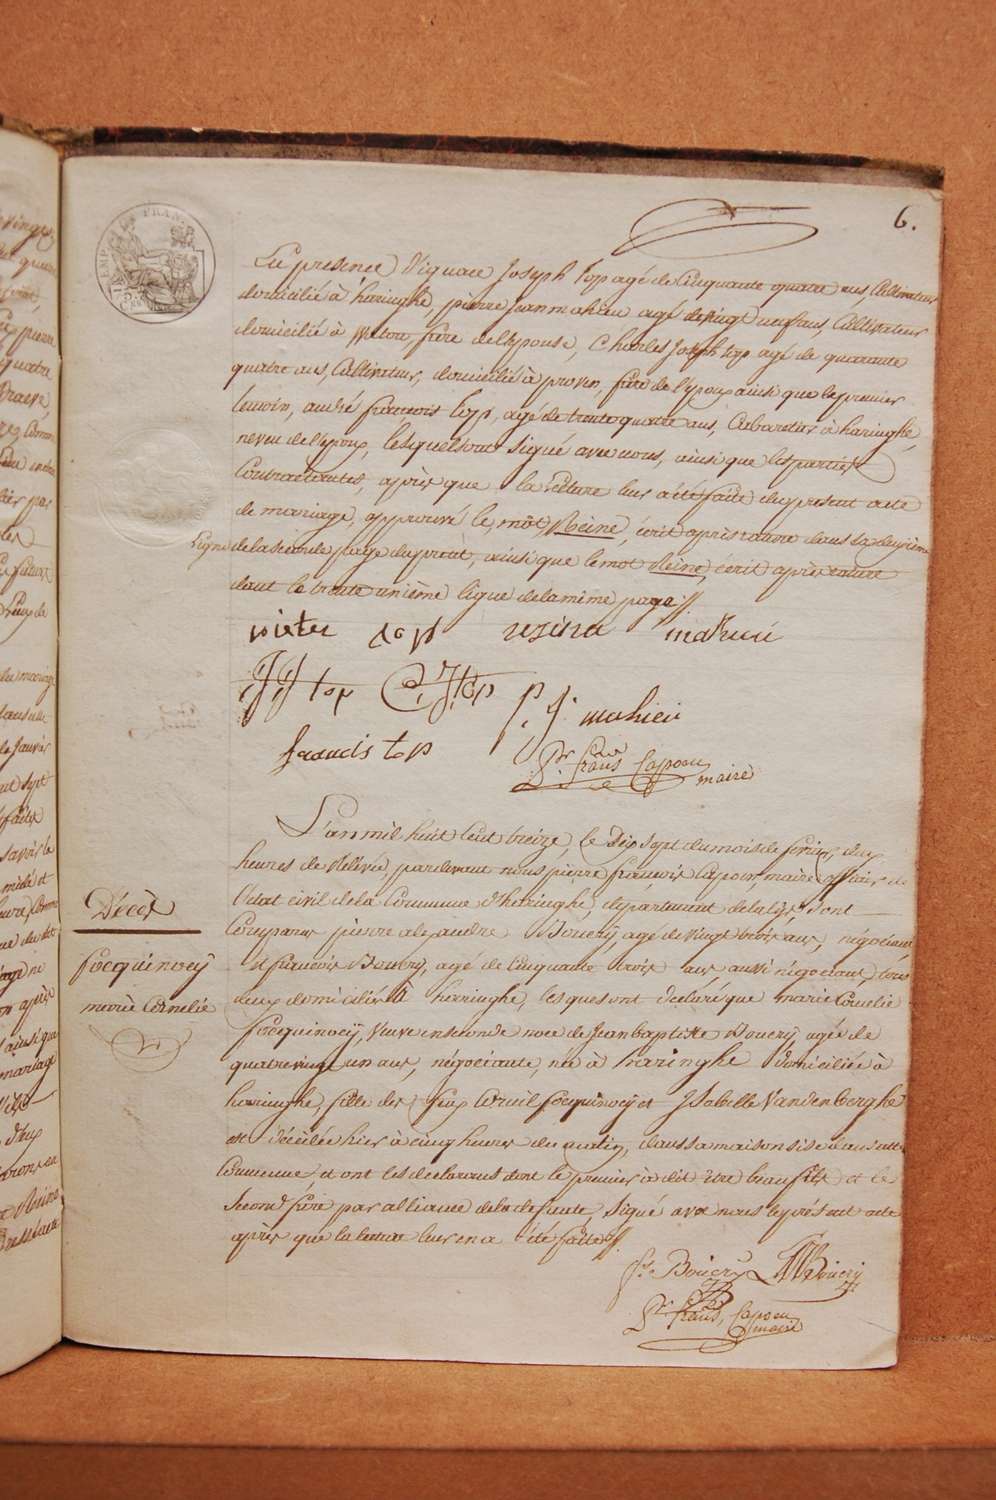 6.
En présence d'ignace Joseph Top agé de Cinquante quatre ans, Cultivateur
domicilié à haringhe, pierre Jean mahieu agé de vingt neuf ans, Cultivateur
domicilié à Watou, frère de l'épouse, Charles Joseph top agé de quarante
quatre ans, Cultivateur, domicilié à proven, frère de l'époux ainsi que le premier
temoin, andré françois top, agé de trente quatre ans, Cabaretier à haringhe,
neveu de l'époux, lesquels ont signé avec nous, ainsi que les parties
Contractantes, après que la lecture leur a été faite du présent acte
de mariage, approuvé le mot Reine, écrit après rature dans la deuxième
Ligne de la seconde page du présent, ainsi que le mot Reine, écrit après rature
dans le trente unième ligne de la même page //.
pieter top resina mahieu
J J top C. J. top
P. J. mahieu
francis top
Pr. frans Capoen
maire
L'an mil huit Cent treize, le Dix sept du mois de fevrier, deux
heures de relevée, pardevant nous pierre françois Capoen, maire officier de
l'état civil de la Commune d'haringhe, département de la Lys, Sont
Comparus pierre alexandre Bouery agé de vingt trois ans, négociant
et françois Bouery, agé de Cinquante trois ans aussi négociant, tous
deux domiciliés à haringhe, lesquels ont declaré que marie Cornelie
Décès
focquinoey
marie Cornelie
focquinoey, Veuve en seconde noce de Jean baptiste Bouery, agée de
quatre vingt un ans, négociante, née à haringhe Domiciliée à
haringhe, fille des feux Corneil focquinoey et Isabelle Vandenberghe
est décédée hier à cinq heures du matin, dans sa maison sise dans cette
Commune, et ont les declarans dont le premier à dit être beau fils et le
Second frère par alliance de la defunte, signé avec nous le présent acte
après que la lecture leur en a été faite //.
fs. Bouery PA Bouery
Pr. frans, Capoen
maire